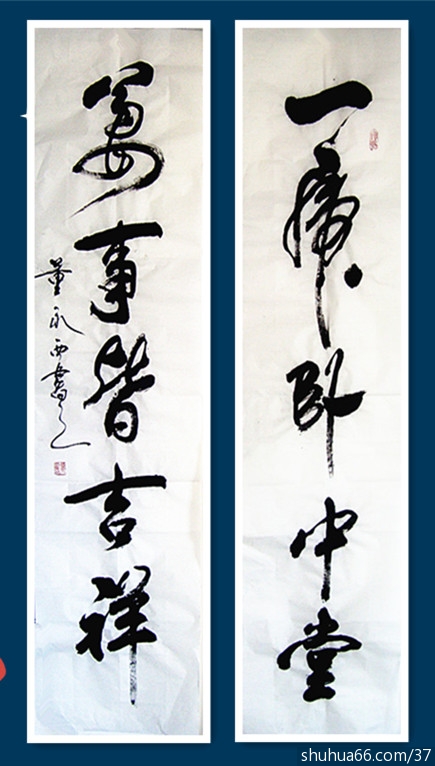 一虎卧中堂
萬事皆吉祥
董永西書之
shuhua66.com/37